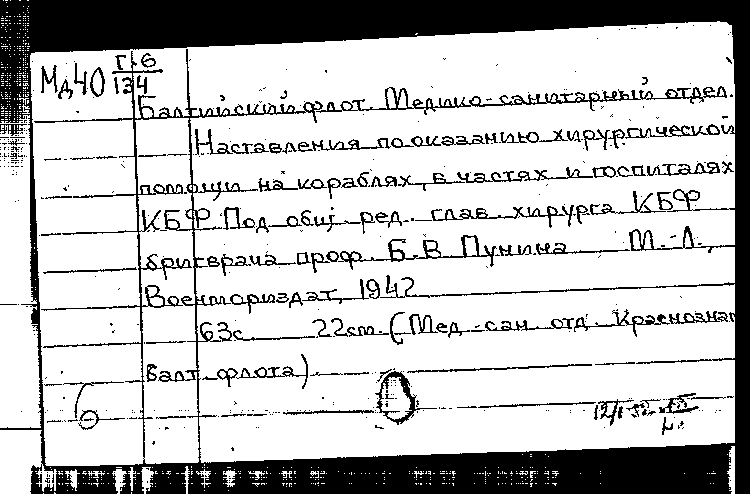 Мд40 Г-6
134
Балтийский флот. Медико-санитарный отдел.
Наставления по оказанию хирургической
помощи на кораблях, в частях и госпиталях
КБФ. Под общ. ред. глав. хирурга КБФ
бригврача проф. Б. В. Пунина М.-Л.,
Военмориздат, 1942
63с. 22см. (Мед.-сан. отд. Краснознам
Балт. флота).
б